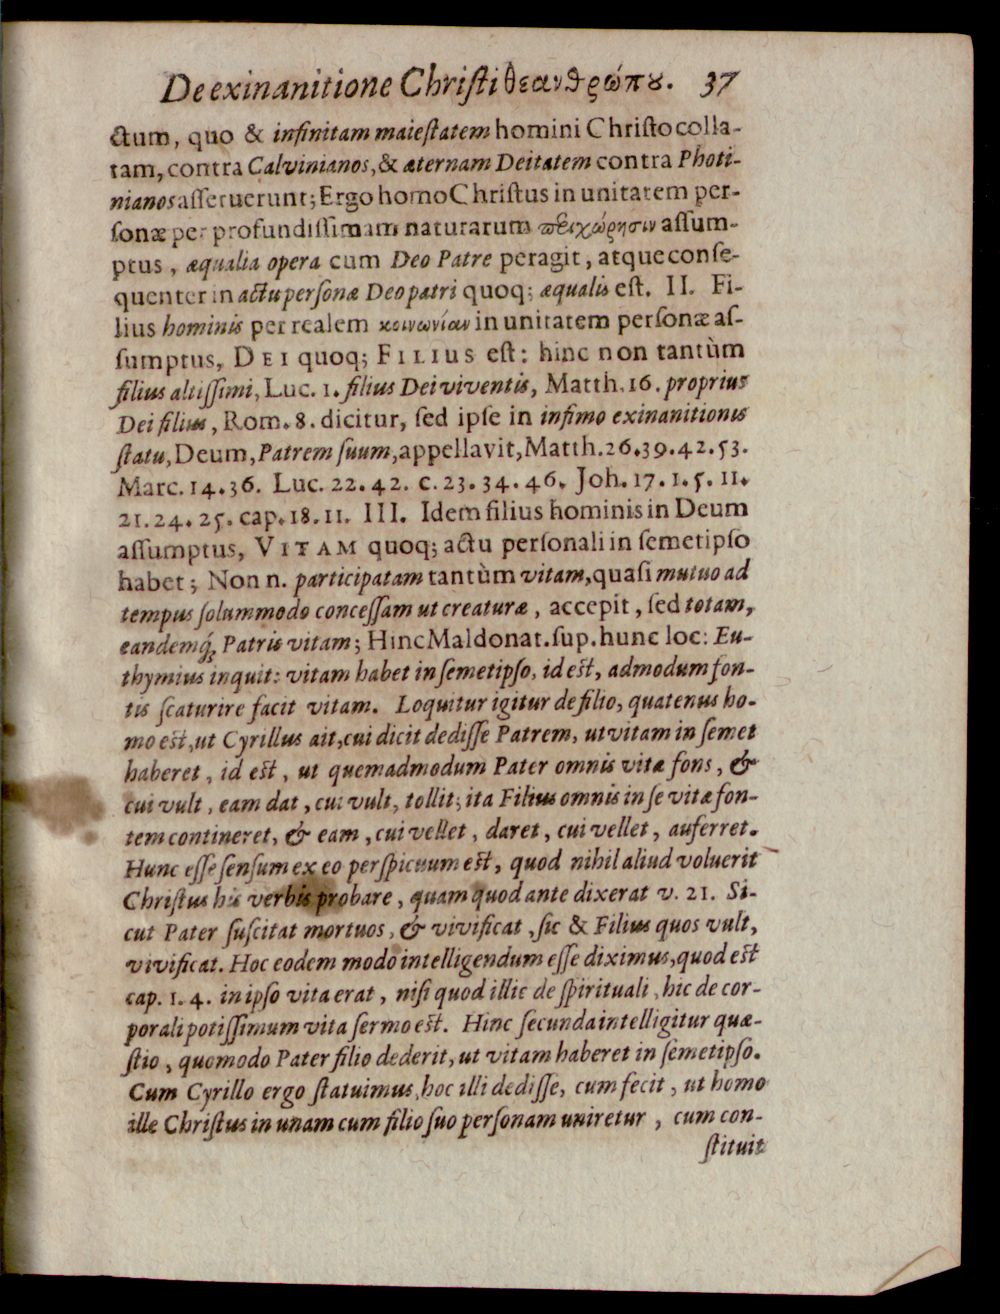 De exinanitione Christi θεανθρώπου. 37
ctum, quo & infinitam maiestatem homini Christo colla-
tam, contra Calvinianos, & æternam Deitatem contra Photi-
nianos asseruerunt; Ergo homo Christus in unitatem per-
sonæ per profundissimam naturarum περιχώρησιν assum-
ptus, æqualia opera cum Deo Patre peragit, atque conse-
quenter in actu personæ Deo patri quoq; æqualis est. II. Fi-
lius hominis per realem κοινωνίαν in unitatem personæ as-
sumptus, DEI quoq; FILIUS est: hinc non tantùm
filius altissimi, Luc. 1. filius Dei viventis, Matth. 16. proprius
Dei filius, Rom. 8. dicitur, sed ipse in infimo exinanitionis
statu, Deum, Patrem suum, appellavit, Matth. 26. 39. 42. 53.
Marc. 14. 36. Luc. 22. 42. c. 23. 34. 46. Joh. 17. 1. 5. 11.
21. 24. 25. cap. 18. 11. III. Idem filius hominis in Deum
assumptus, VITAM quoq; actu personali in semetipso
habet; Non n. participatam tantùm vitam, quasi mutuo ad
tempus solummodo concessam ut creaturæ, accepit, sed totam,
eandemq; Patris vitam; Hinc Maldonat. sup. hunc loc: Eu-
thymius inquit: vitam habet in semetipso, id est, admodum fon-
tis scaturire facit vitam. Loquitur igitur de filio, quatenus ho-
mo est, ut Cyrillus ait, cui dicit dedisse Patrem, ut vitam in semet
haberet, id est, ut quemadmodum Pater omnis vitæ fons, &
cui vult, eam dat, cui vult, tollit; ita Filius omnis in se vitæ fon-
tem contineret, & eam, cui vellet, daret, cui vellet, auferret.
Hunc esse sensum ex eo perspicuum est, quod nihil aliud voluerit
Christus his verbis probare, quam quod ante dixerat v. 21. Si-
cut Pater suscitat mortuos, & vivificat, sic & Filius quos vult,
vivificat. Hoc eodem modo intelligendum esse diximus, quod est
cap. 1. 4. in ipso vita erat, nisi quod illic de spirituali, hic de cor-
porali potissimum vita sermo est. Hinc secunda intelligitur quæ-
stio, quomodo Pater filio dederit, ut vitam haberet in semetipso.
Cum Cyrillo ergo statuimus, hoc illi dedisse, cum fecit, ut homo
ille Christus in unam cum filio suo personam uniretur, cum con-
stituit